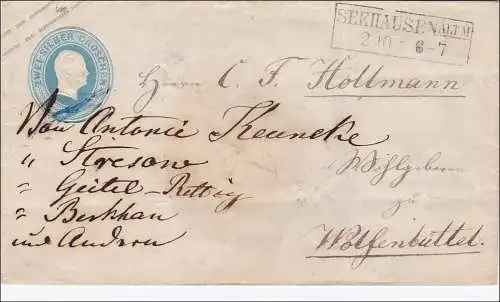 SEEHAUSEN ALTM
2 10 6-7
ZWEI SILBER GROSCHEN
Herrn C. F. Hollmann
Von Antonie Keuncke
" Stresow
" Geitel-Rettig
" Berkhan
und Andern
Wohlgeboren
zu
Wolfenbüttel.